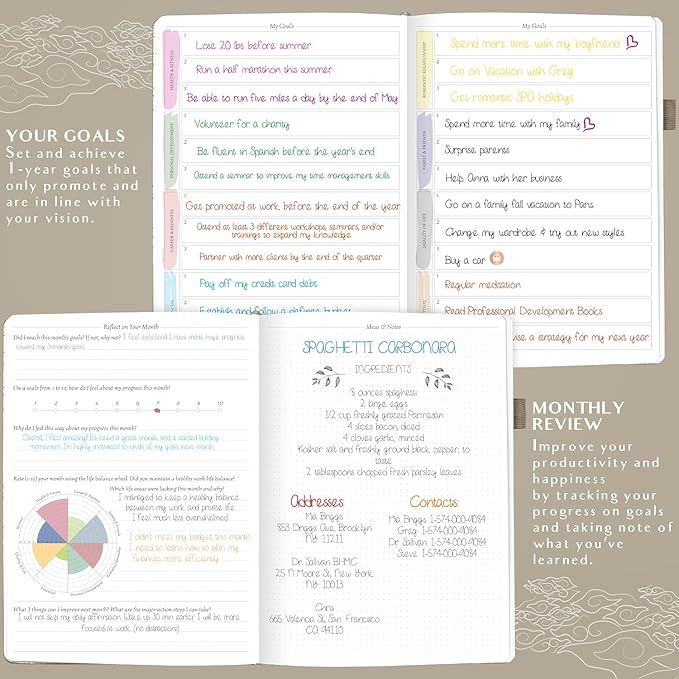 My Goals
HEALTH & FITNESS
1 Lose 20 lbs before summer
2 Run a half marathon this summer
3 Be able to run five miles a day by the end of May
PERSONAL DEVELOPMENT
1 Volunteer for a charity
2 Be fluent in Spanish before the year's end
3 Attend a seminar to improve my time management skills
CAREER & BUSINESS
1 Get promoted at work before the end of the year
2 Attend at least 3 different workshops, seminars, and/or
trainings to expand my knowledge.
3 Partner with more clients by the end of the quarter
1 Pay off my credit card debt
Establish and follow a definite budget
My Goals
ROMANTIC RELATIONSHIP
1 Spend more time with my boyfriend
2 Go on Vacation with Greg
3 Get romantic SPA holidays
FAMILY & FRIENDS
1 Spend more time with my family
2 Surprise parents
3 Help Anna with her business
QUALITY OF LIFE
1 Go on a family fall vacation to Paris
2 Change my wardrobe & try out new styles
3 Buy a car
1 Regular meditation
2 Read Professional Development Books
use a strategy for my next year
YOUR GOALS
Set and achieve
1-year goals that
only promote and
are in line with
your vision.
Reflect on Your Month
Did I reach this month's goals? If not, why not? I feel excellent! I have made huge progress
toward my 3-month goals
On a scale from 1 to 10, how do I feel about my progress this month?
1 2 3 4 5 6 7 8 9 10
Why do I feel this way about my progress this month?
Overall, I feel amazing! It's been a great month, and it started building
momentum. I'm highly motivated to crush all my goals next month
Rate (1-10) your month using the life balance wheel. Did you maintain a healthy work-life balance?
Which life areas were lacking this month and why?
I managed to keep a healthy balance
between my work, and private life.
I feel much less overwhelmed
I didn't meet my budget this month.
I need to learn how to plan my
finances more efficiently.
What 3 things can I improve next month? What are the major action steps I can take?
I will not skip my daily affirmation. Wake up 30 min earlier. I will be more
focused at work (no distractions)
Ideas & Notes
SPAGHETTI CARBONARA
INGREDIENTS
8 ounces spaghetti
2 large eggs
1/2 cup freshly grated Parmesan
4 slices bacon, diced
4 cloves garlic, minced
Kosher salt and freshly ground black pepper, to
taste
2 tablespoons chopped fresh parsley leaves
Addresses:
Mia Briggs
853 Driggs Ave, Brooklyn
NJ, 11211
Dr. Sallivan BHMC
25 N Moore St, New York
NJ, 10013
Chris
665 Valencia St, San Francisco
CA, 94110
Contacts:
Mia Briggs 1-574-000-9084
Greg 1-574-000-9084
Dr. Sallivan 1-574-000-9084
Steve 1-574-000-9084
MONTHLY
REVIEW
Improve your
productivity and
happiness
by tracking your
progress on goals
and taking note of
what you've
learned.